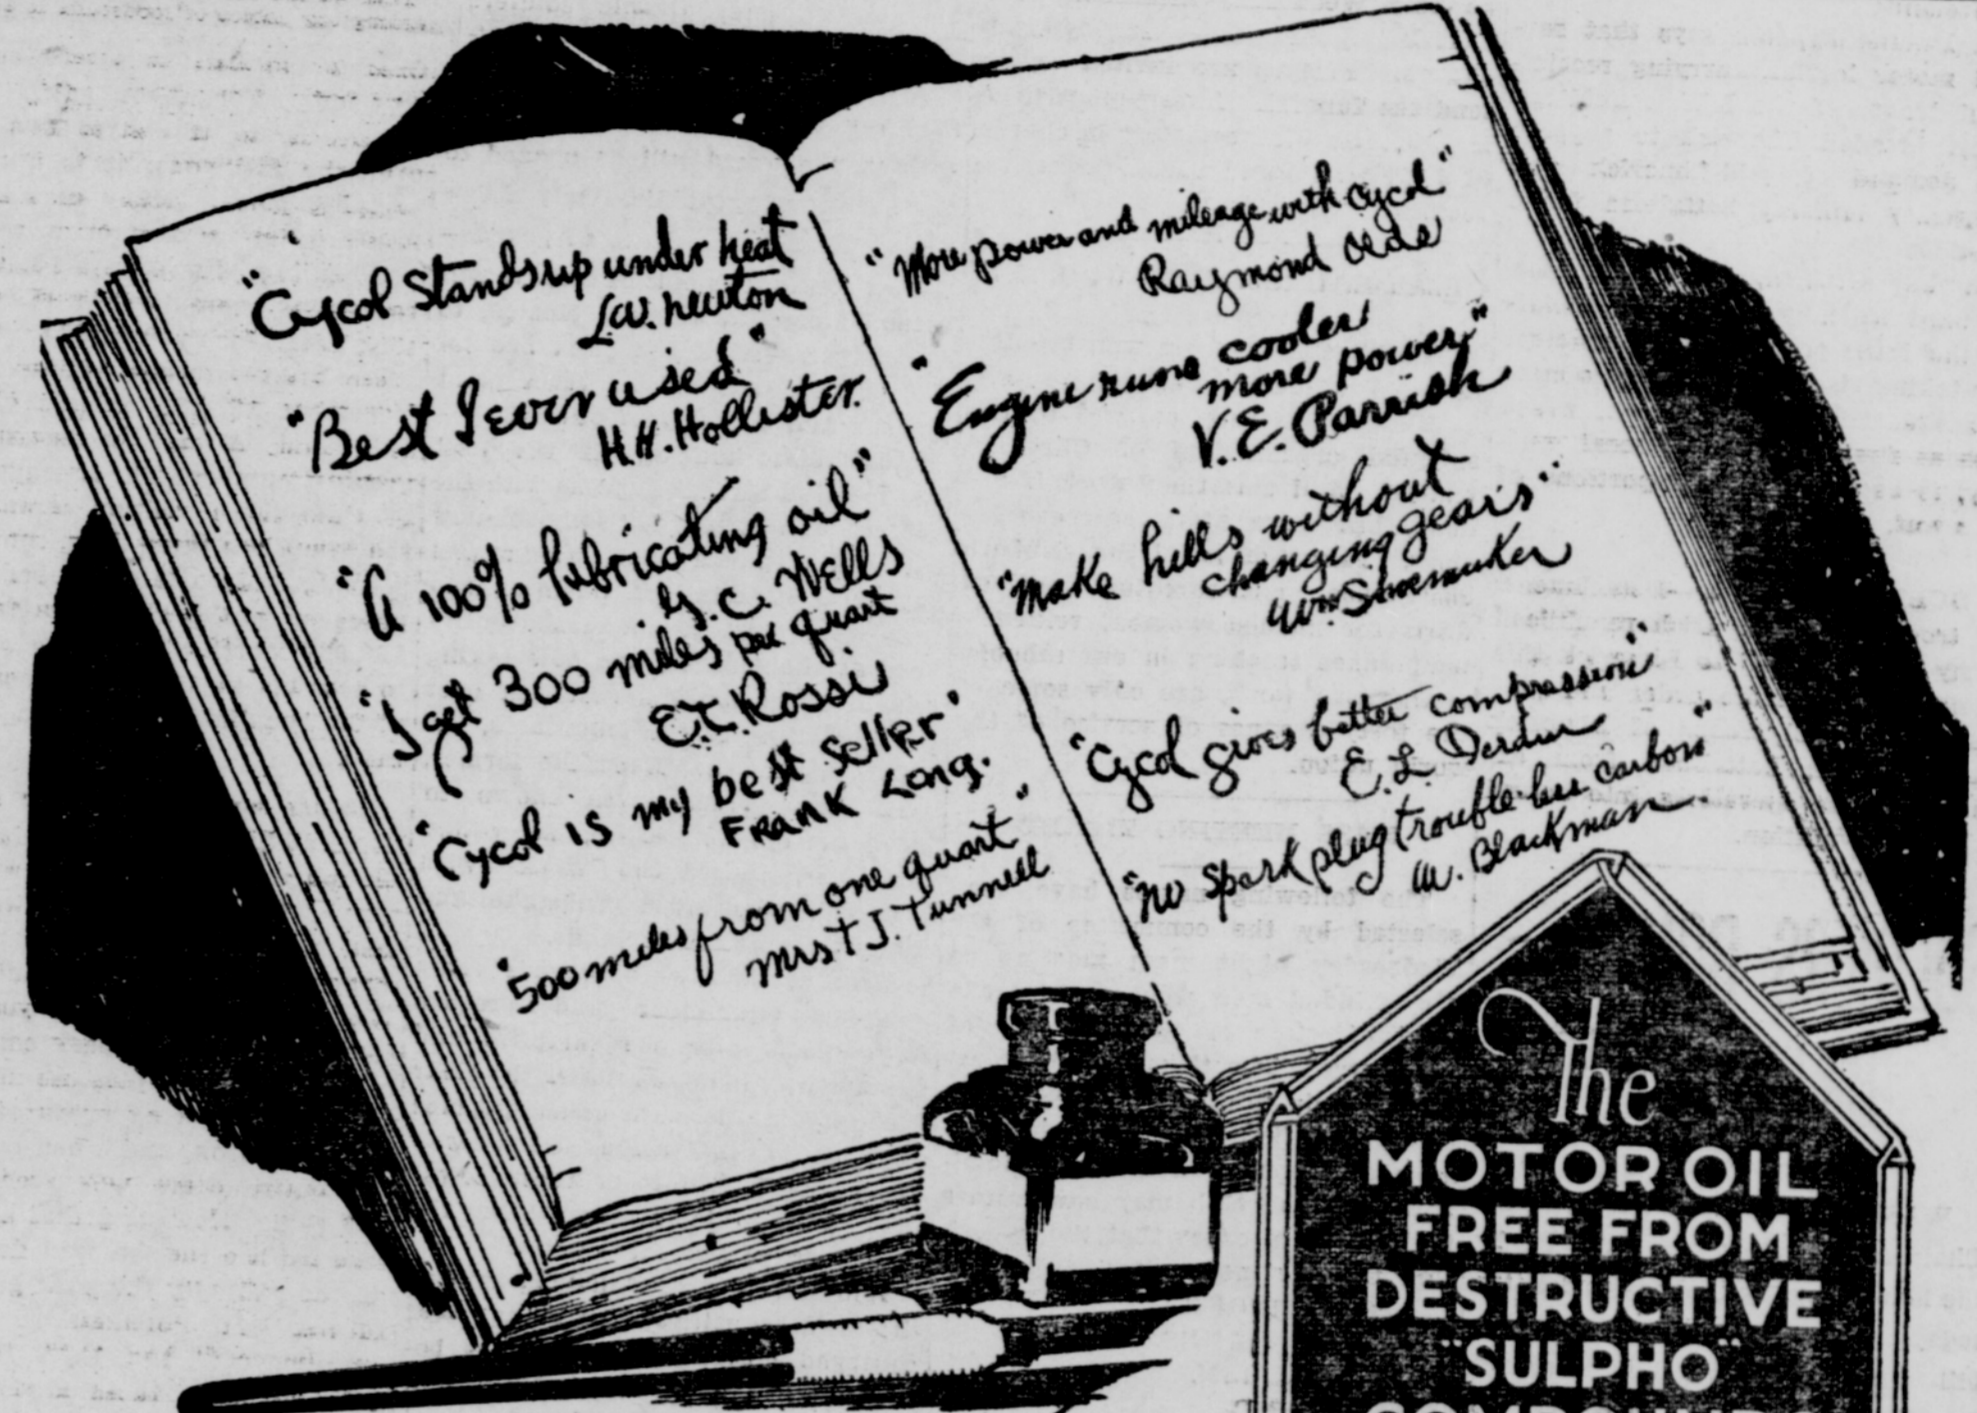 "Cycol Stands up under heat
L.W. Newton
"Best I ever used"
H.H. Hollister.
"A 100% lubricating oil"
C. Wells
"I get 300 miles per quart
E.T. Rossi
"Cycol is my best seller"
FRANK Long.
"500 miles from one quart"
Mrs T J. Tunnell
"More power and mileage with Cycol"
Raymond
"Engine runs cooler
more power"
V.E. Parrish
"Make hills without
changing gears"
Wm Shoemaker
"Cycol gives better compression"
E. L.
"No spark plug trouble-less carbon"
W. Blackman
The
MOTOR OIL
FREE FROM
DESTRUCTIVE
"SULPHO"